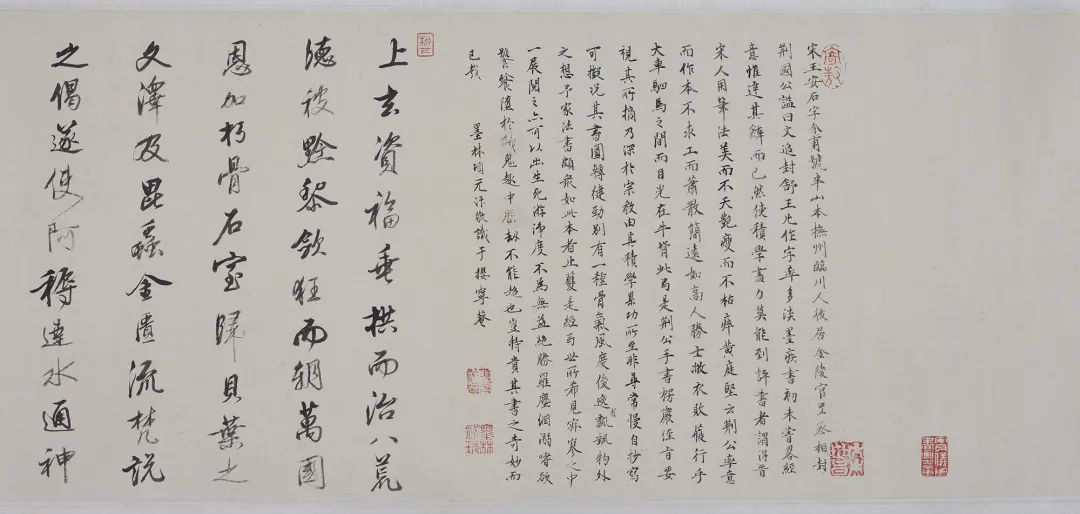 宋王安石字介甫號半山本撫州臨川人後居金陵官至丞相封
荊國公謚曰文追封舒王凡作字率多淡墨疾書初未嘗畧經
意惟達其辭而已然使積學盡力莫能到評書者謂得晉
宋人用筆法美而不夭艷瘦而不枯瘁黃庭堅云荊公率意
而作本不求工而蕭散簡遠如高人勝士敝衣敗履行乎
大車駟馬之間而目光在牛背此局是荊公手書楞嚴經旨要
視其所摘乃深於宗教由其積學累功所至非尋常慢自抄寫
可擬況其書圓轉健勁別有一種骨氣風度俊逸飄飄有物外
之想予家法書頗最如此本者止雙是經焉世所希見齋寥之中
一展閱之亦可以出生死游淨度不為無益絕勝羅塵網溺嗜欲
饕餮墮於餓鬼趣中歷劫不能超也豈特貴其書之奇妙而
已哉
墨林項元汴敬識于攖寧菴
上玄資福垂拱而治八荒
德被黔黎斂衽而朝萬國
恩加朽骨石室歸貝葉之
文澤及昆蟲金匱流梵說
之偈遂使阿耨達水通神